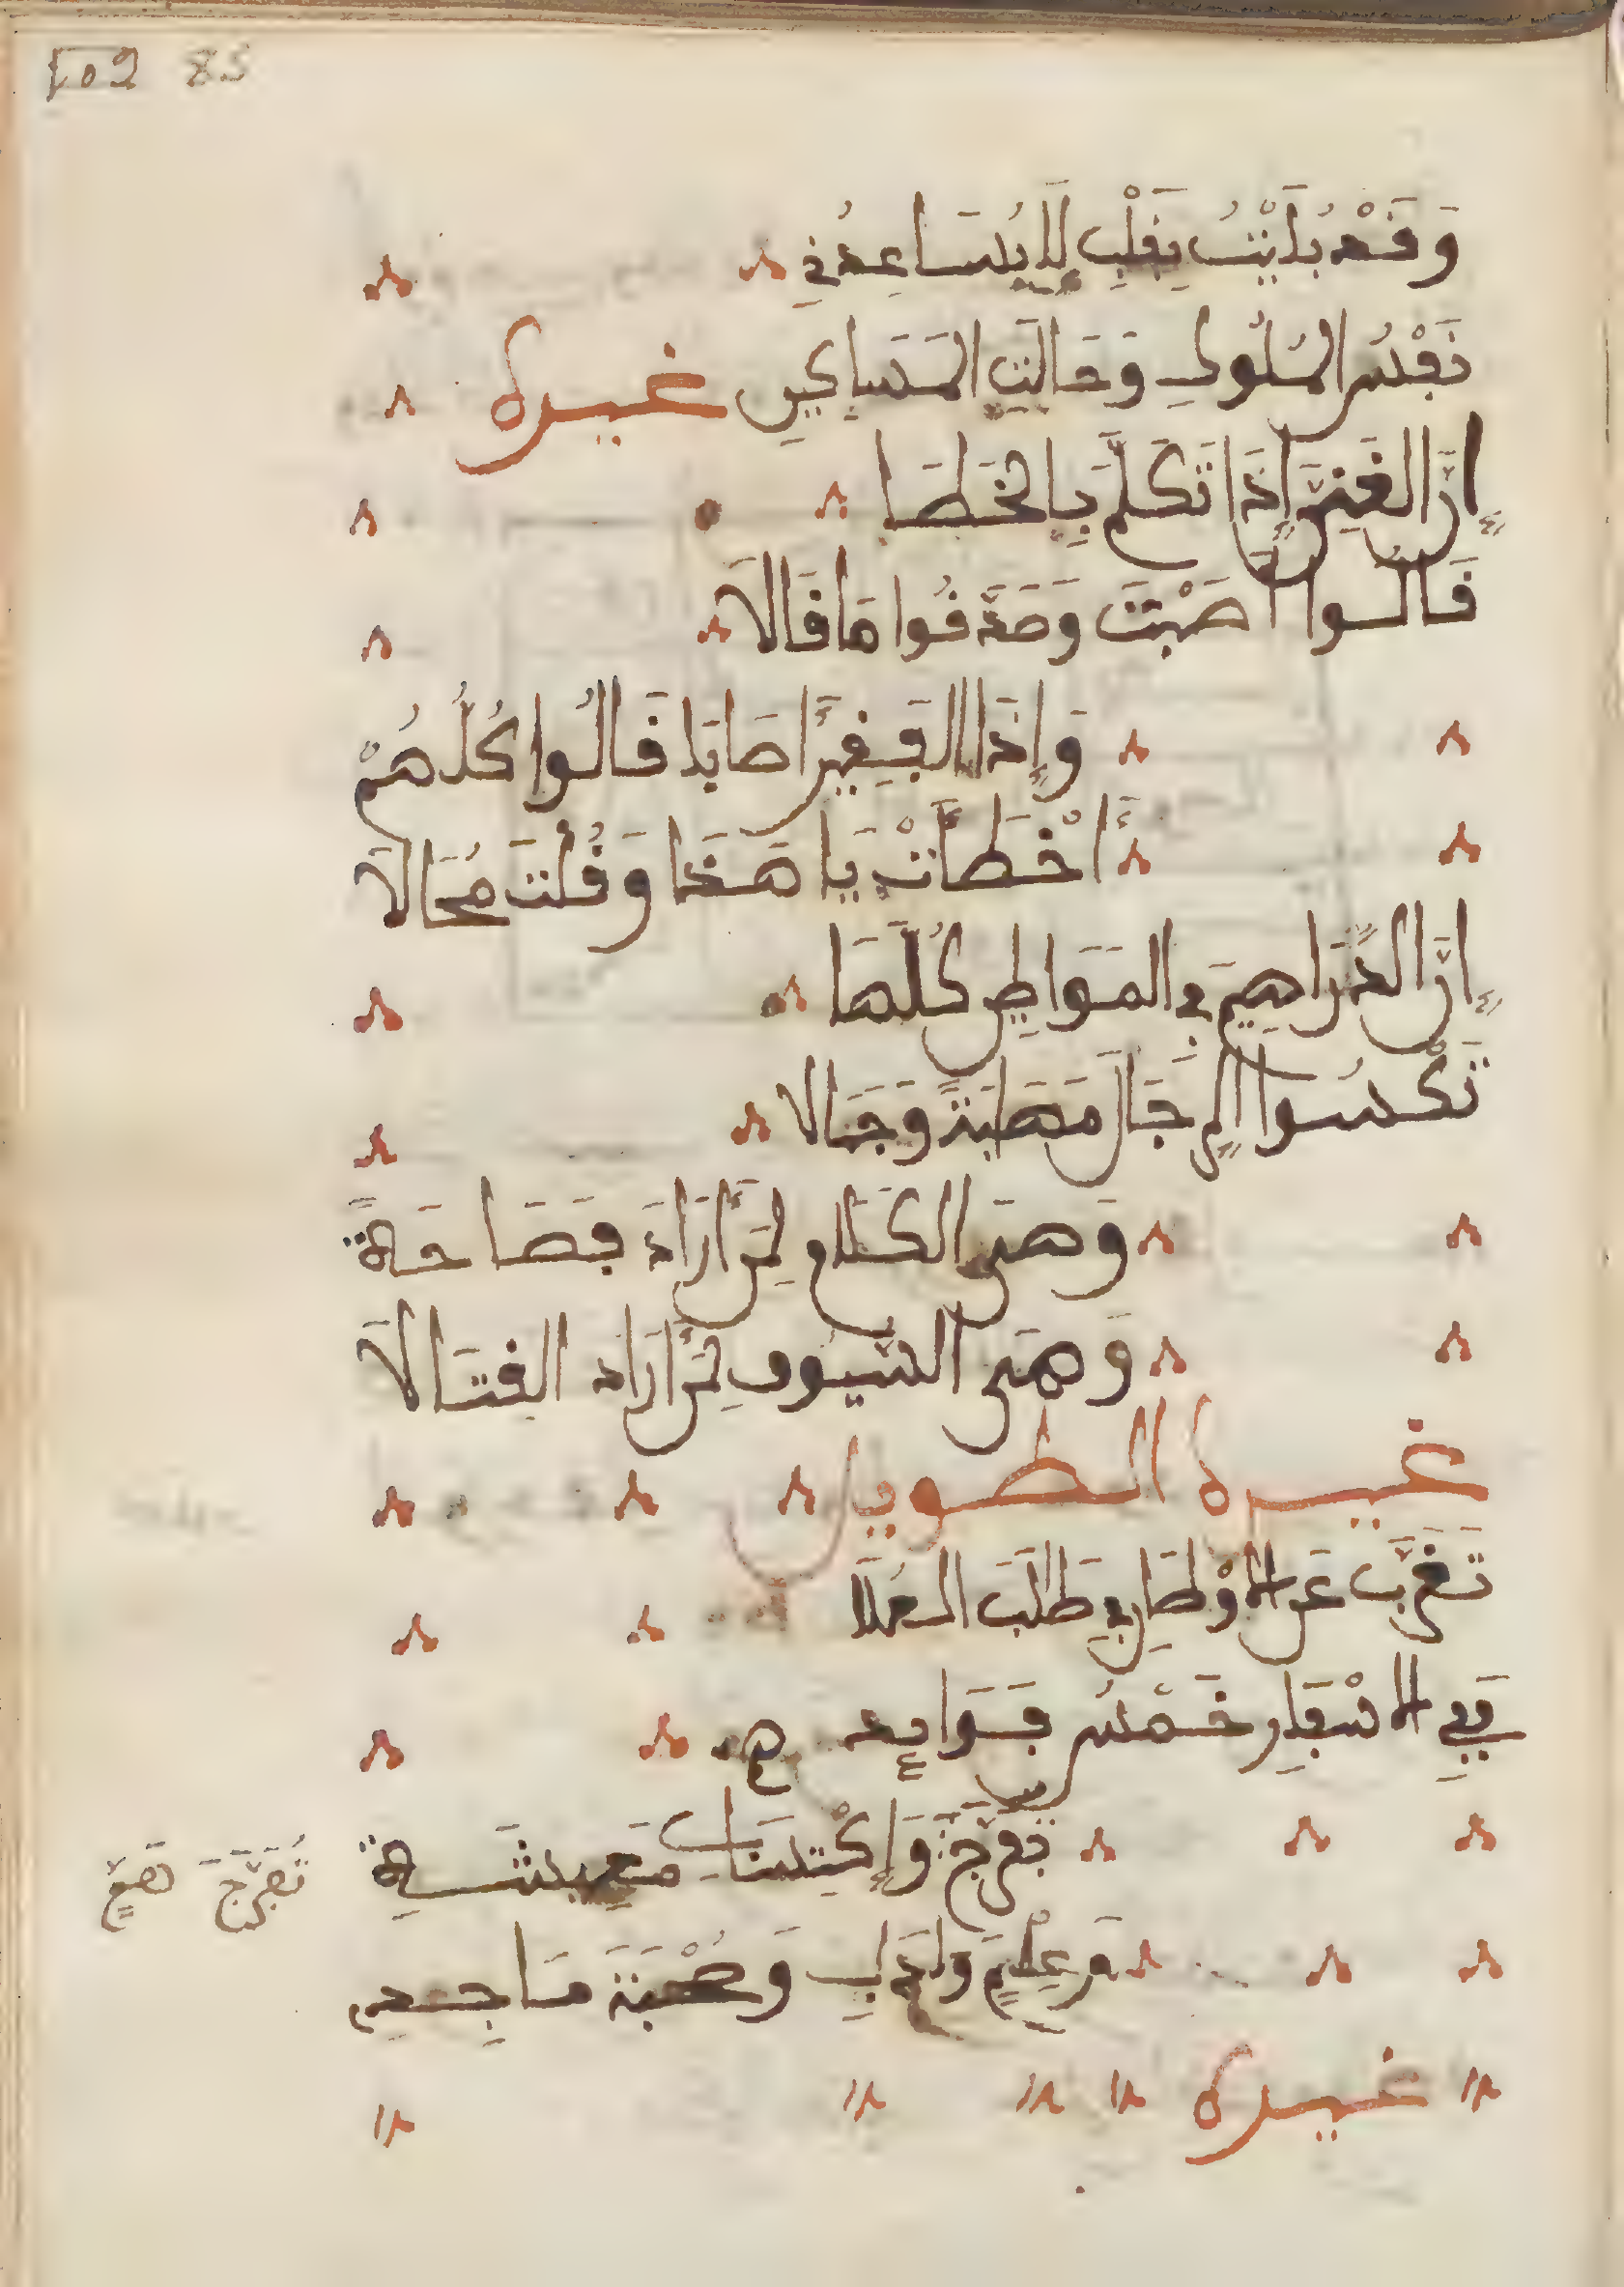 85
وَقَدْ بُلِيْتُ بِقَلْبٍ لَا يُسَاعِدُنِي
نَفْسُ الْمُلُوكِ وَحَالَتِ الْمَسَاكِينِ غيره
إِنَّ الغَنِيَّ إِذَا تَكَلَّمَ بِالخَطَا
قَالُوا أَصَبْتَ وَصَدَّقُوا مَا قَالَا
وَإِذَا الفَقِيرُ أَصَابَا قَالُوا كُلُّهُمْ
أَخْطَأْتَ يَا هَذَا وَقُلْتَ مُحَالَا
إِنَّ الدَّرَاهِمَ فِي المَوَاطِنِ كُلِّهَا
تَكْسُوا الرِّجَالَ مَهَابَةً وَجَمَالَا
وَهِيَ الكَلَامُ لِمَنْ أَرَادَ فَصَاحَةً
وَهِيَ السُّيُوفُ لِمَنْ أَرَادَ القِتَالَا
غيره الطويل
تَغَرَّبْ عَنِ الأَوْطَانِ فِي طَلَبِ العُلَا
فَفِي الأَسْفَارِ خَمْسُ فَوَايِد
تَفَرُّجُ وَإِكْتِسَابُ مَعِيشَةٍ
وَعِلْمٍ وَءَادَابٍ وَصُحْبَةَ مَاجِدِ
تَفَرُّجَ هَمٍّ
غيره